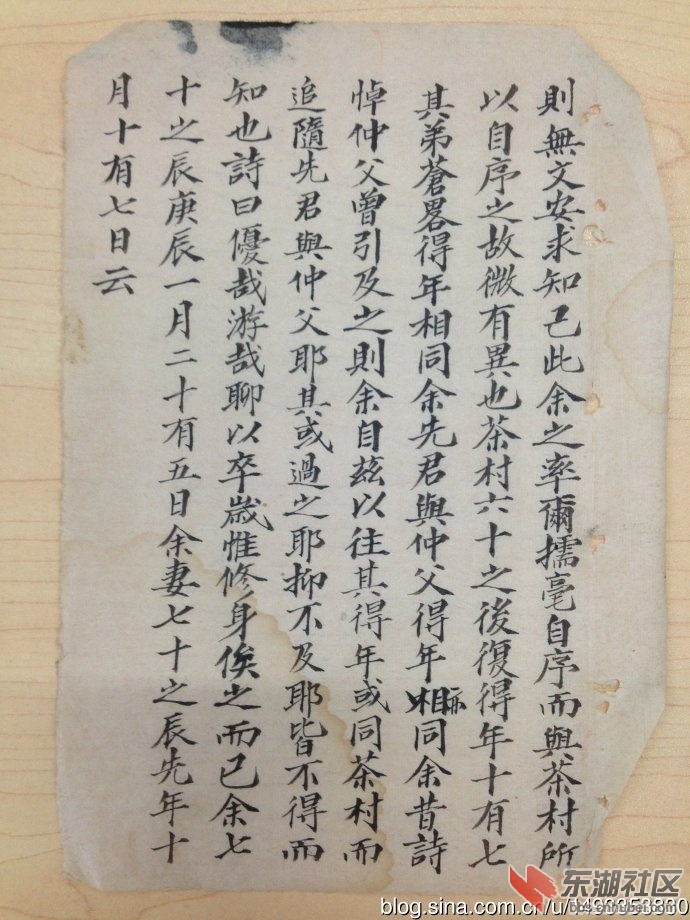 則無文安求知己此余之率爾擩毫自序而與茶村所
以自序之故微有異也茶村六十之後復得年十有七
其弟蒼畧得年相同余先君與仲父得年相亦同余昔詩
悼仲父曾引及之則余自茲以往其得年或同茶村而
追隨先君與仲父耶其或過之耶抑不及耶皆不得而
知也詩曰優哉游哉聊以卒歲惟修身俟之而已余七
十之辰庚辰一月二十有五日余妻七十之辰先年十
月十有七日云
东湖社区